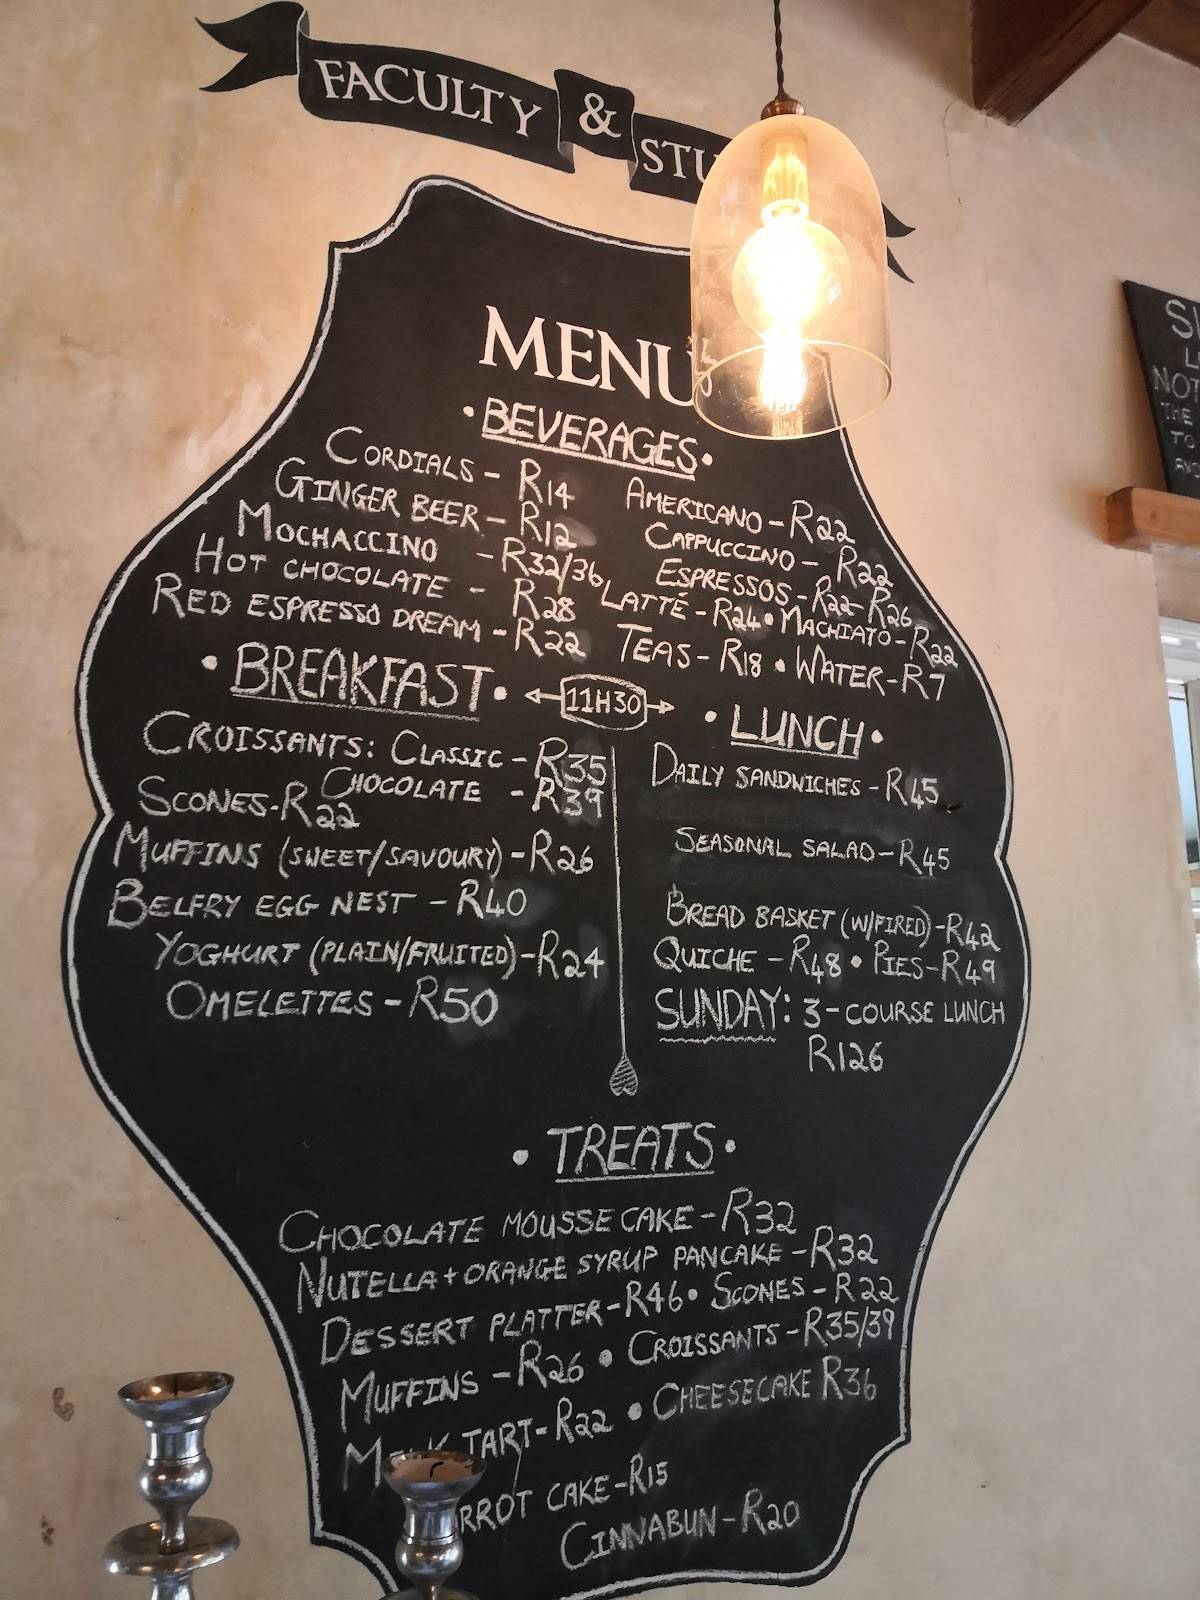 FACULTY & STU
MENU
• BEVERAGES •
CORDIALS - R14
GINGER BEER - R12
MOCHACCINO - R32/36
HOT CHOCOLATE - R28
RED ESPRESSO DREAM - R22
AMERICANO - R22
CAPPUCCINO - R22
ESPRESSOS - R22 - R26
LATTÉ - R24 • MACHIATO - R22
TEAS - R18 • WATER - R7
• BREAKFAST •
11H30
• LUNCH •
CROISSANTS: CLASSIC - R35
CHOCOLATE - R39
SCONES - R22
MUFFINS (SWEET/SAVOURY) - R26
BELFRY EGG NEST - R40
YOGHURT (PLAIN/FRUITED) - R24
OMELETTES - R50
DAILY SANDWICHES - R45
SEASONAL SALAD - R45
BREAD BASKET (W/FIRED) - R42
QUICHE - R48 • PIES - R49
SUNDAY: 3-COURSE LUNCH
R126
• TREATS •
CHOCOLATE MOUSSE CAKE - R32
NUTELLA + ORANGE SYRUP PANCAKE - R32
DESSERT PLATTER - R46 • SCONES - R22
MUFFINS - R26 • CROISSANTS - R35/39
TART - R22 • CHEESECAKE R36
RROT CAKE - R15
CINNABUN - R20
NOT
THE
TO